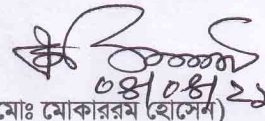 ০৪/০৪/২১
(মোঃ মোকাররম হোসেন)